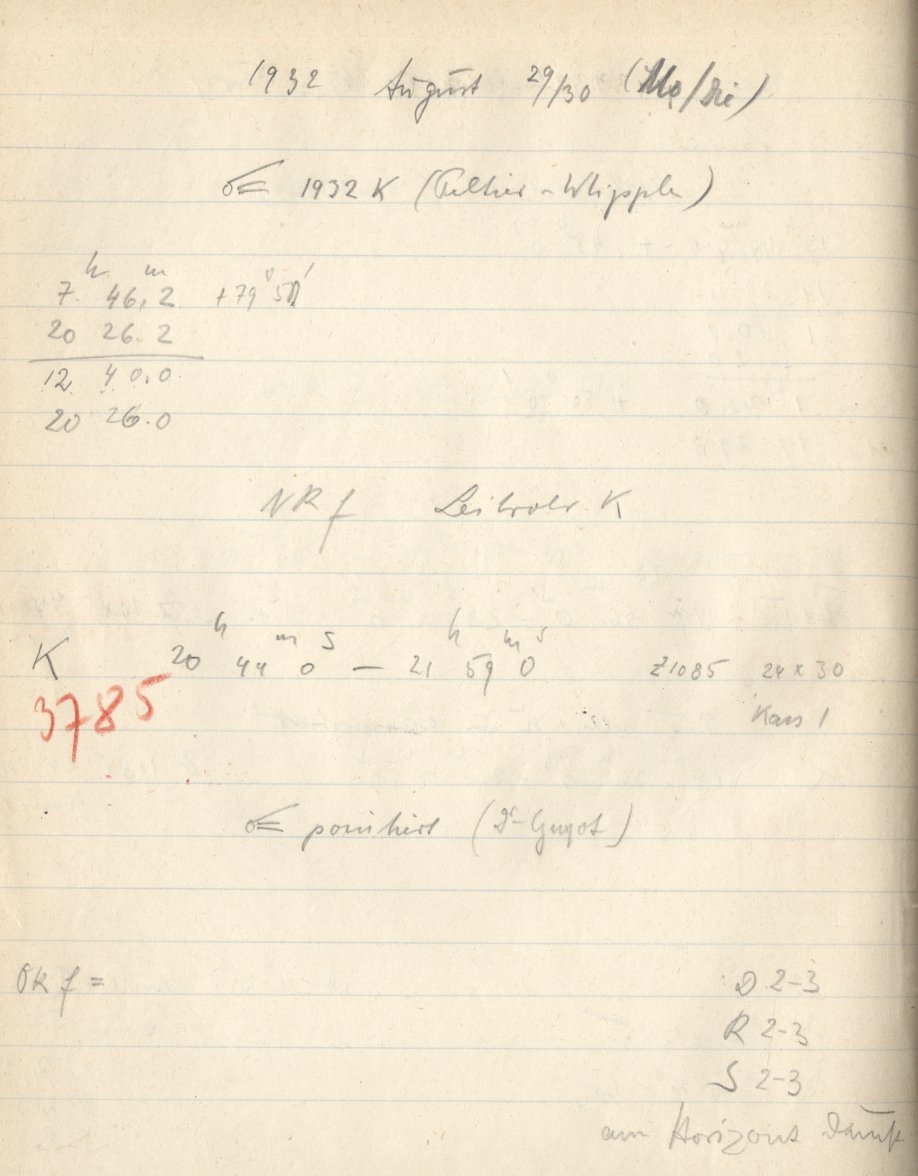 1932 August 29/30 (Mo/Die)
☄ 1932 K (Peltier-Whipple)
h m
7. 46.2 +79° 51'
20 26.2
12 40.0
20 26.0
NR f Leitrohr K
h m s h m s
K 20 44 0 — 21 59 0 Z1085 24 x 30
3785 Kass 1
☄ pointiert (Dr Guyot)
OK f =
D 2-3
R 2-3
S 2-3
am Horizont Dunst